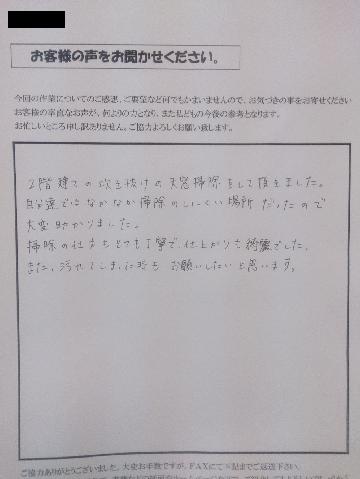 お客様の声をお聞かせください。
今回の作業についてのご感想、ご要望など何でもかまいませんので、お気づきの事をお寄せください
お客様の率直なお声が、何よりの力となり、また私どもの今後の参考となります。
お忙しいところ申し訳ありません。ご協力よろしくお願い致します。
2階建ての吹き抜けの天窓掃除をして頂きました。
自分達ではなかなか掃除のしにくい場所だったので
大変助かりました。
掃除の仕方もとても丁寧で、仕上がりも綺麗でした。
また、汚れてしまった時も お願いしたいと思います。
ご協力ありがとうございました。大変お手数ですが、FAXにて下記までご返送下さい。